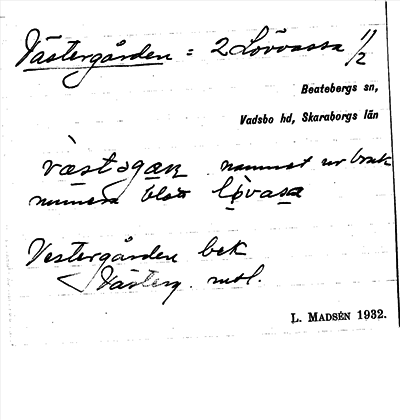 Västergården = 2 Lövåssa 1/2
Beatebergs sn,
Vadsbo hd, Skaraborgs län
väst ɔ gaṇ namnet ur bruk
numera blott lövasa
Vestergården bek
Västerg. mtl.
L. MADSÉN 1932.